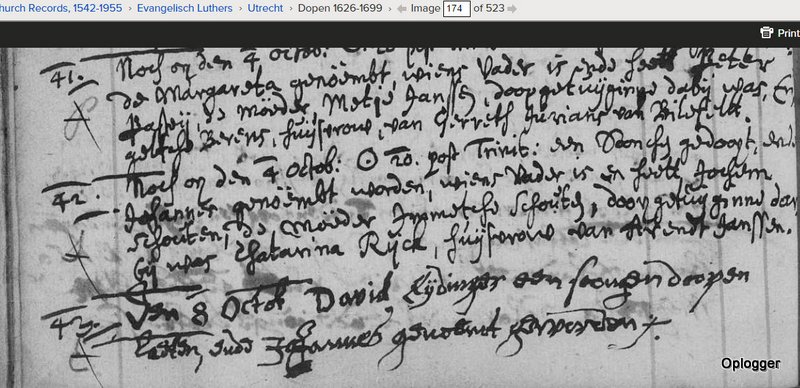 hurch Records, 1542-1955 › Evangelisch Luthers › Utrecht › Dopen 1626-1699 › Image 174 of 523
Print
41. Noch op den 4 Octob:
de Margareta genöembt, wiens Vader is ende heett Peter
de Möeder Metje Janssen, door getuijginne dabij was, En
Berens, huijsvrow, van Gerrett Jurians van Bilefelt.
42. Noch op den 4 Octob: ☉ 20. post Trinit: een Soonche gedoopt, ende
Johannes genöembt worden, wiens Vader is en heett Jochem
Schouten, de Möeder Immetche Schouten, door getuijginne dar
bij was Chatarina Rijck, huijsvrow van Arendt Janssen.
43. Den 8 Octob. David Eijdinger een soongen doopen
laeten, ende Johannes genoemt geworden.
Oplogger